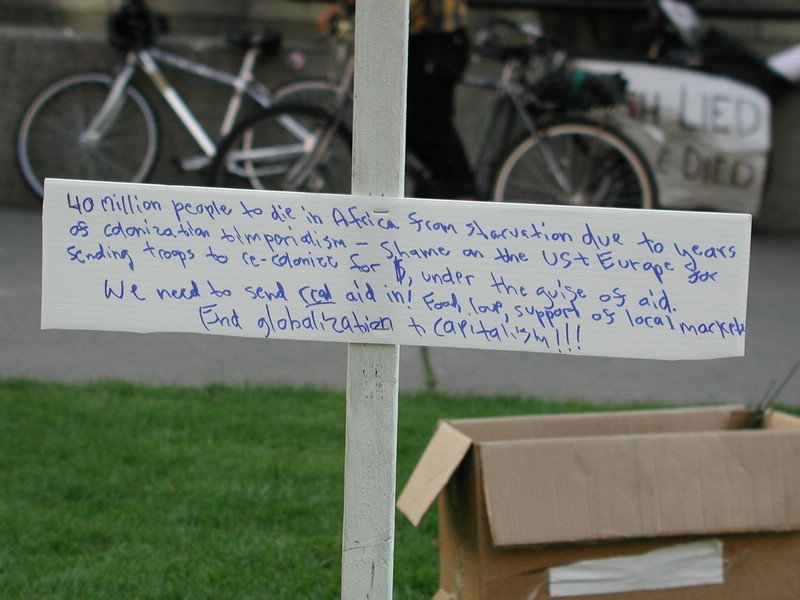 40 Million people to die in Africa from starvation due to years
of colonization & Imporialism - Shame on the US & Europe for
sending troops to re-colonize for $, under the guise of aid.
We need to send real aid in! Food, love, support of local markets
End globalization & Capitalism!!!
LIED
DIED